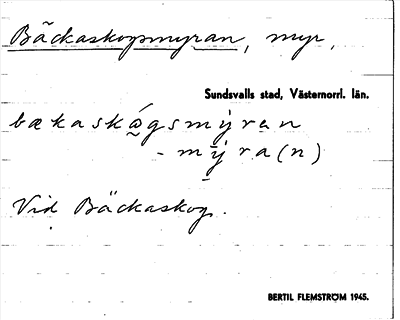 Bäckaskogsmyran, myr,
Sundsvalls stad, Västernorrl. län.
bækaskó̰gsmỳrən
- mỳ̄ra(n)
Vid Bäckaskog.
BERTIL FLEMSTRÖM 1945.